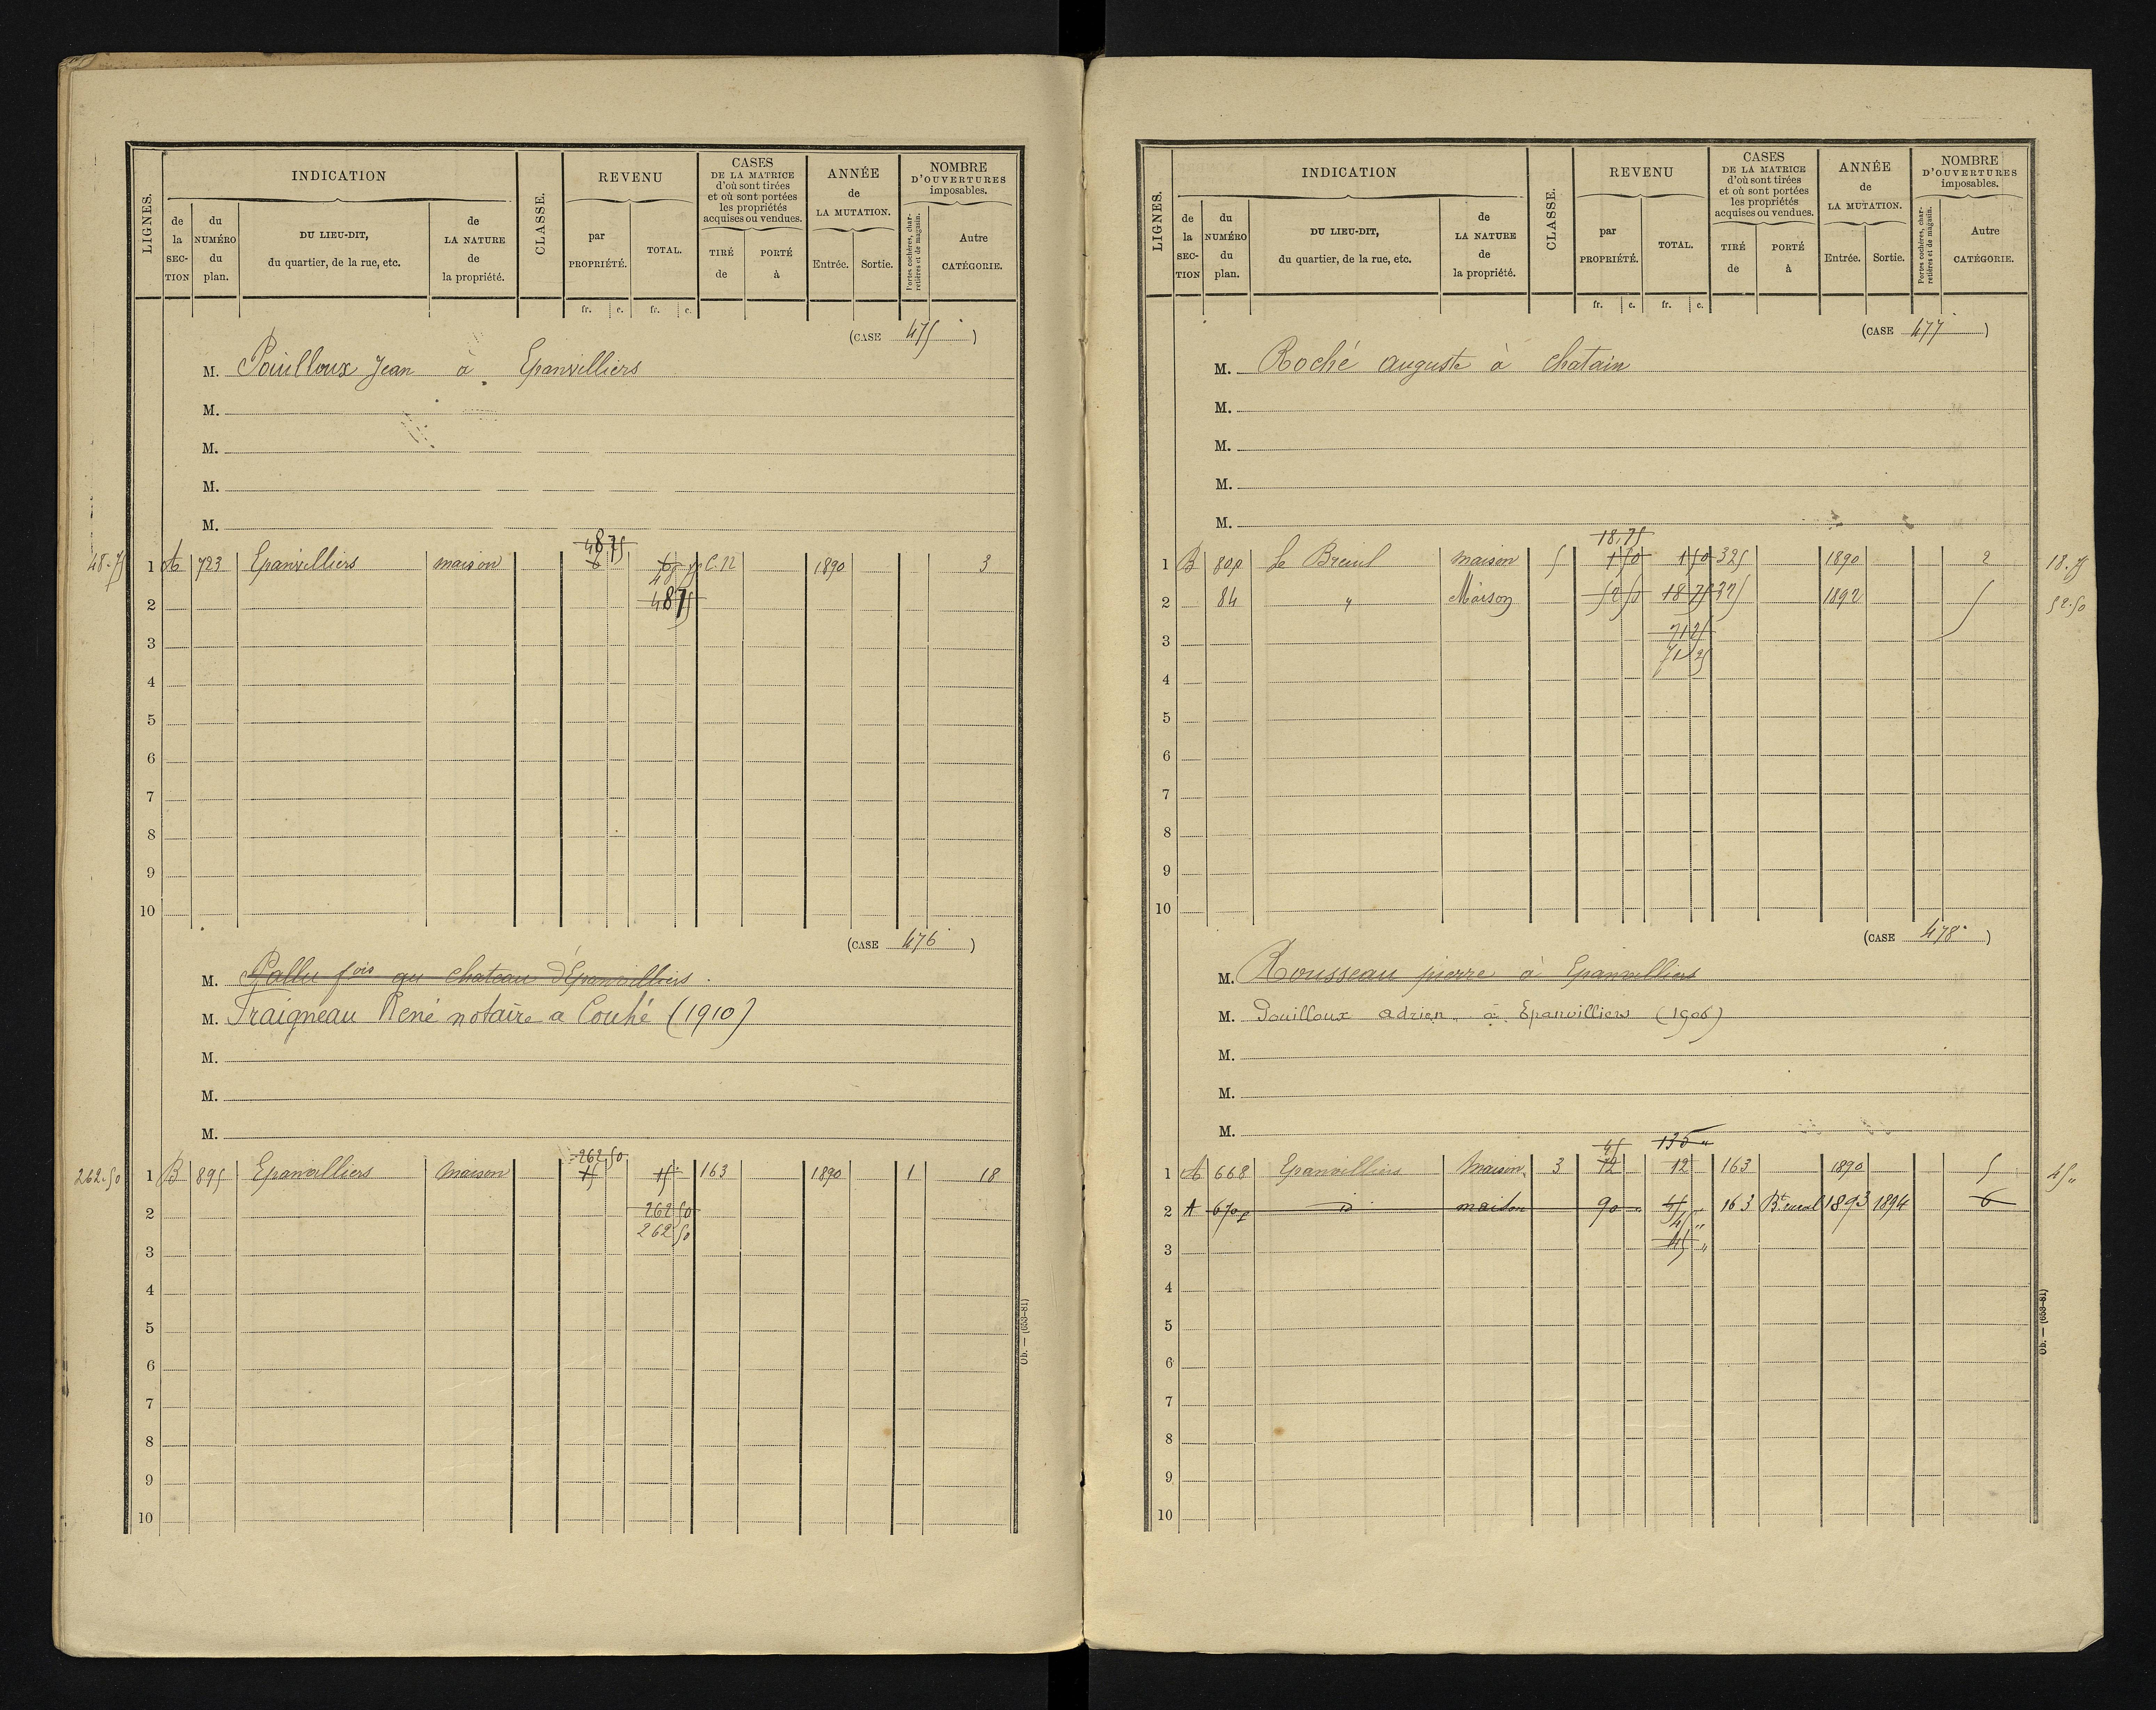 LIGNES.
INDICATION
CLASSE.
REVENU
CASES DE LA MATRICE d'où sont tirées et où sont portées les propriétés acquises ou vendues.
ANNÉE de LA MUTATION.
NOMBRE D'OUVERTURES imposables.
de la SECTION
du NUMÉRO du plan.
DU LIEU-DIT, du quartier, de la rue, etc.
de LA NATURE de la propriété.
par PROPRIÉTÉ.
TOTAL.
TIRÉ de
PORTÉ à
Entrée.
Sortie.
Portes cochères, charretières et de magasin.
Autre CATÉGORIE.
fr. c. fr. c.
(CASE 475)
M. Pouilloux Jean à Epanvilliers
M.
M.
M.
M.
48 75
48.75 1 A 723 Epanvilliers maison 6 6 C.12 1890 3
48 75
2 48 75
3
4
5
6
7
8
9
10
(CASE 476)
M. Pallu fois au chateau d'Epanvilliers.
M. Fraigneau René notaire a Couhé (1910)
M.
M.
M.
262 50
262.50 1 B 895 Epanvilliers Maison 15 15 163 1890 1 18
2 262 50
262 50
3
4
5
6
7
8
9
10
Ob. — (653-81)
LIGNES.
INDICATION
CLASSE.
REVENU
CASES DE LA MATRICE d'où sont tirées et où sont portées les propriétés acquises ou vendues.
ANNÉE de LA MUTATION.
NOMBRE D'OUVERTURES imposables.
de la SECTION
du NUMÉRO du plan.
DU LIEU-DIT, du quartier, de la rue, etc.
de LA NATURE de la propriété.
par PROPRIÉTÉ.
TOTAL.
TIRÉ de
PORTÉ à
Entrée.
Sortie.
Portes cochères, charretières et de magasin.
Autre CATÉGORIE.
fr. c. fr. c.
(CASE 477)
M. Roché auguste à chatain
M.
M.
M.
M.
18.75
1 B 80p Le Breuil maison 5 1 50 1 50 325 1890 2 18.75
2 84 " Maison 52 50 18 75 325 1892 5 52.50
3 71 25
71 25
4
5
6
7
8
9
10
(CASE 478)
M. Rousseau pierre à Epanvilliers
M. Pouilloux adrien à Epanvilliers (1906)
M.
M.
M.
45 135 "
1 A 668 Epanvilliers Maison 3 12 12 163 1890 5 45 "
2 A 670p d° maison 90 " 45 " 163 Bt. rural 1893 1894 6
45 "
3 45 "
4
5
6
7
8
9
10
Ob. — (653-81)